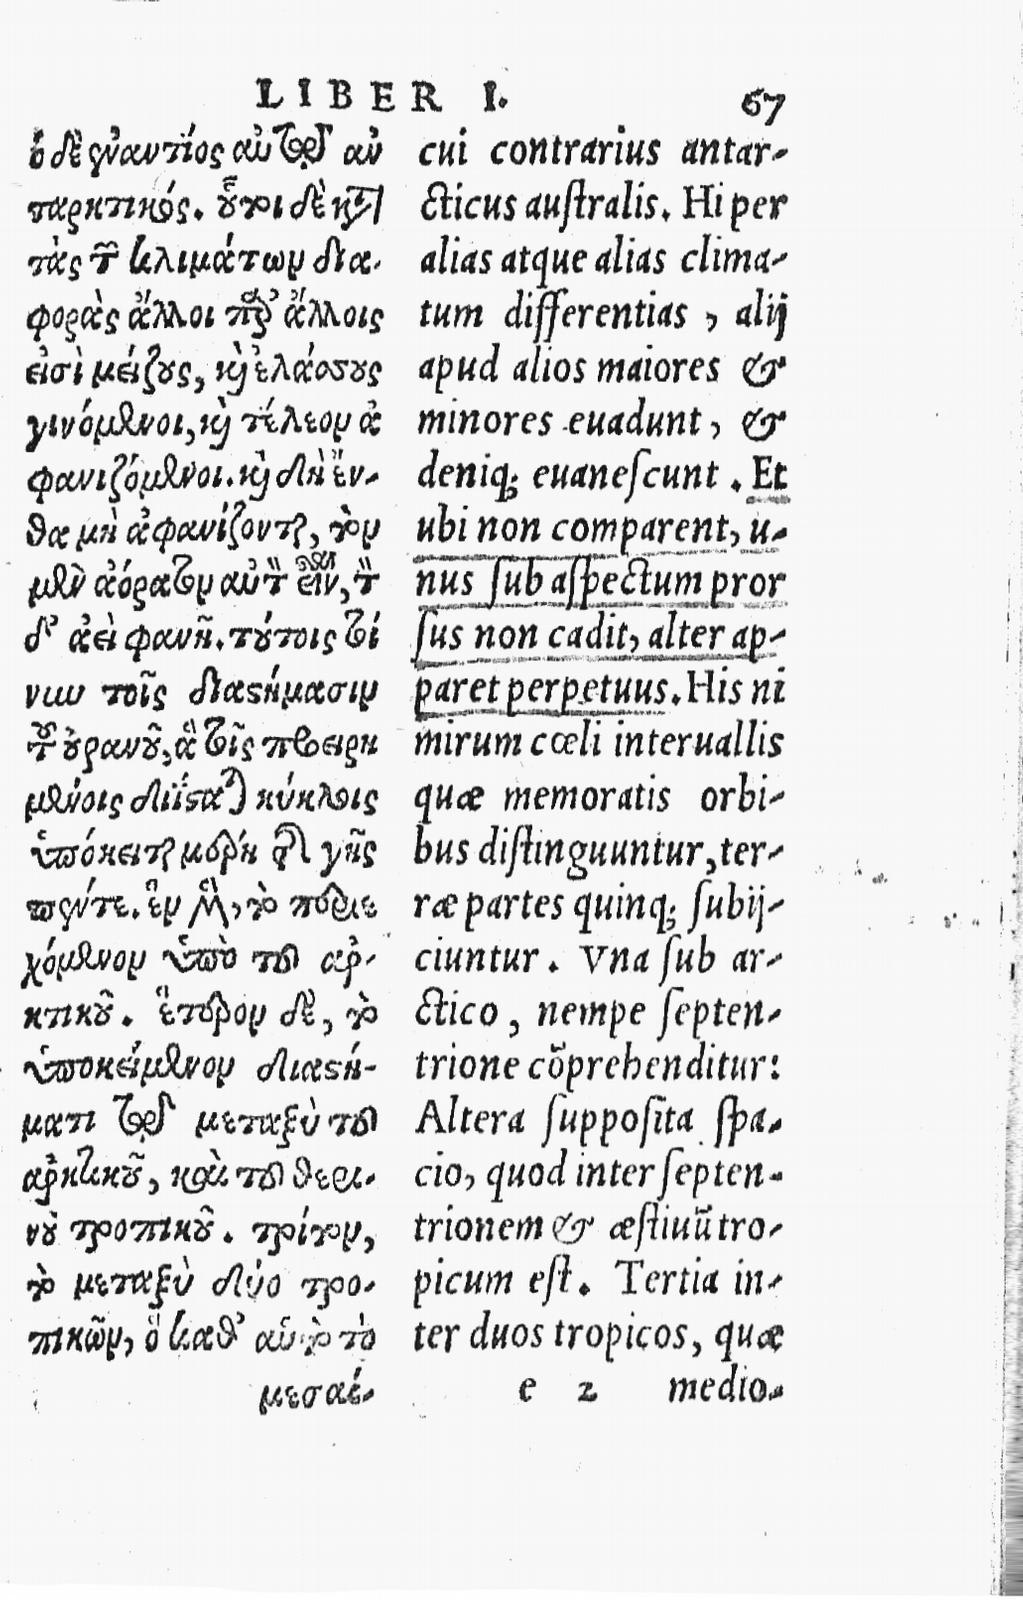 LIBER I. 67
ὁ δὲ ἐναντίος αὐτῷ ἀν
ταρκτικός. οὗτοι δὲ κατὰ
τὰς τῶν κλιμάτων δια-
φορὰς ἄλλοι παρ’ ἄλλοις
εἰσὶ μείζους, καὶ ἐλάσσους
γινόμενοι, καὶ τέλεον ἀ
φανιζόμενοι. καὶ δὴ ἔν-
θα μὴ ἀφανίζονται, τὸν
μὲν ἀόρατον αὐτῶν εἶναι, τῶν
δ’ ἀεὶ φανῆ. τούτοις τοί
νυν τοῖς διαστήμασιν
τοῦ οὐρανοῦ, ἃ τοῖς προειρη
μένοις διίσταται κύκλοις
ὑπόκειται μέρη τῆς γῆς
πέντε. ἓν μὲν, τὸ περιε
χόμενον ὑπὸ τοῦ ἀρ-
κτικοῦ. ἕτερον δὲ, τὸ
ὑποκείμενον διαστή-
ματι τῷ μεταξὺ τοῦ
ἀρκτικοῦ, καὶ τοῦ θερι-
νοῦ τροπικοῦ. τρίτον,
τὸ μεταξὺ δύο τρο-
πικῶν, ὃ καθ’ αὑτὸ τὸ
μεσαί-
cui contrarius antar-
cticus australis. Hi per
alias atque alias clima-
tum differentias, alij
apud alios maiores &
minores euadunt, &
deniq; euanescunt. Et
ubi non comparent, u-
nus sub aspectum pror
sus non cadit, alter ap-
paret perpetuus. His ni
mirum cœli interuallis
quæ memoratis orbi-
bus distinguuntur, ter-
ræ partes quinq; subij-
ciuntur. Vna sub ar-
ctico, nempe septen-
trione cõprehenditur:
Altera supposita spa-
cio, quod inter septen-
trionem & æstiuũ tro-
picum est. Tertia in-
ter duos tropicos, quæ
e 2 medio-